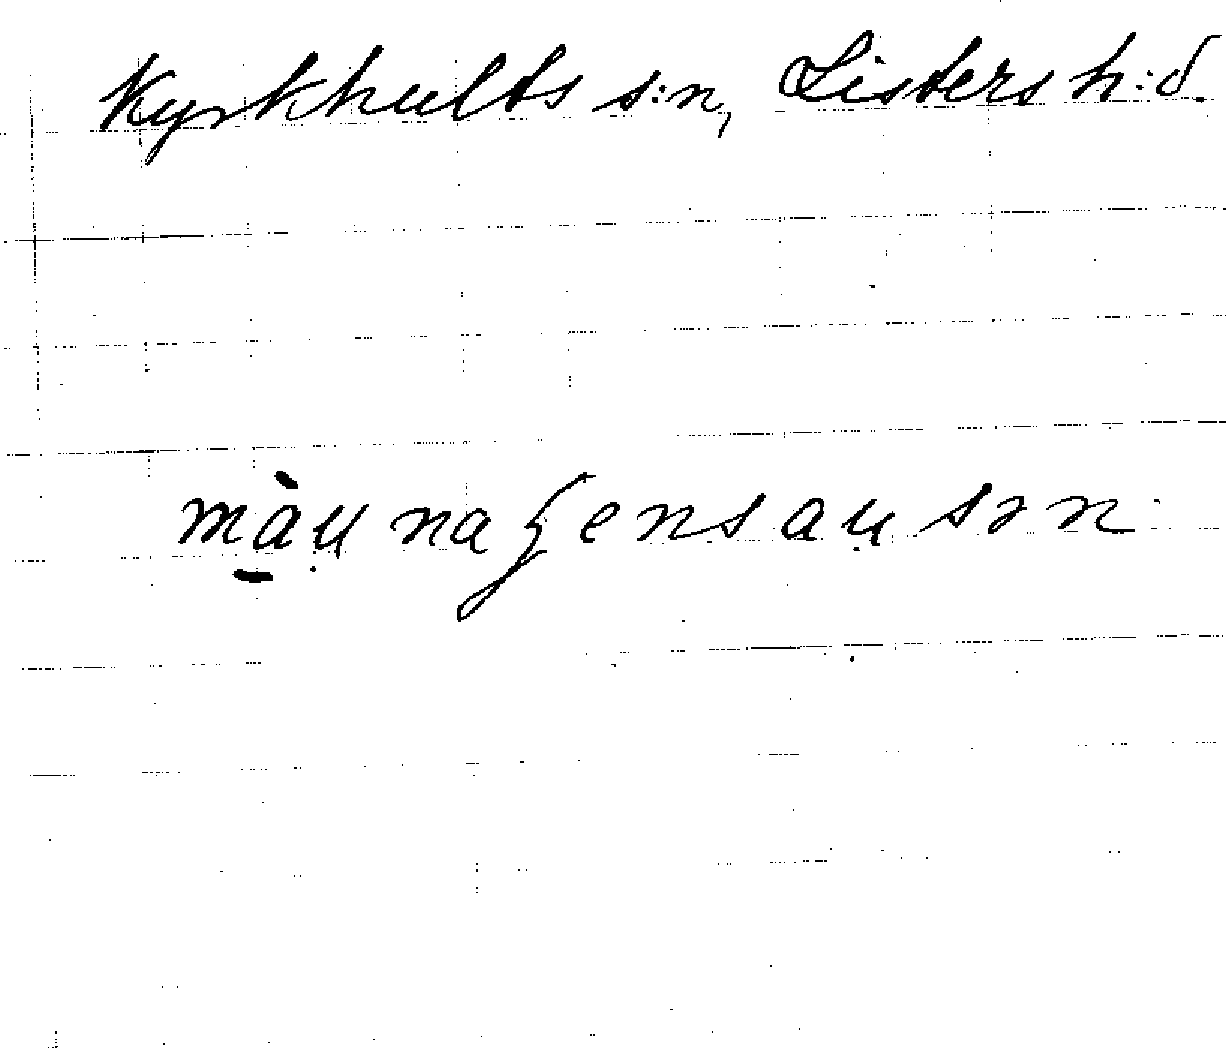 Kyrkhults s:n, Listers h:d.
màu̯nagensau̯sən